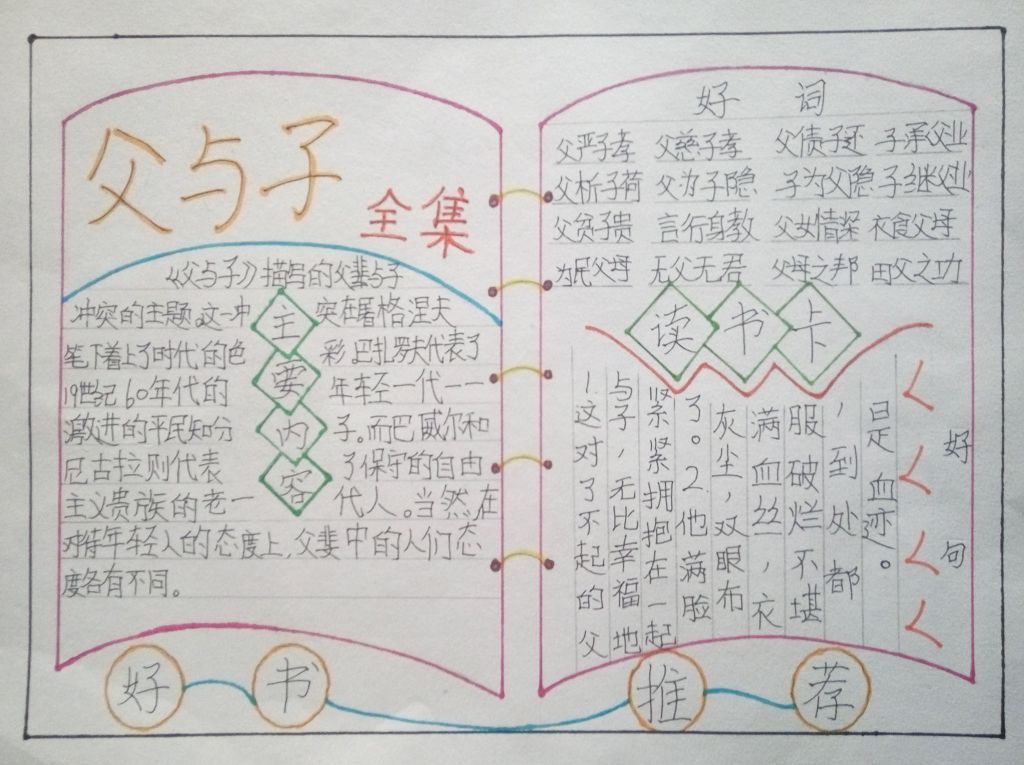 父与子
全集
《父与子》描写的父辈与子
冲突的主题.这一冲突在屠格涅夫
笔下着上了时代的色彩,巴扎罗夫代表了
19世纪60年代的年轻一代一一
激进的平民知分子。而巴威尔和
尼古拉则代表了保守的自由
主义贵族的老一代人。当然,在
对待年轻人的态度上,父辈中的人们态
度各有不同。
主要内容
好词
父严子孝 父慈子孝 父债子还 子承父业
父析子荷 父为子隐 子为父隐 子继父业
父贫子贵 言行身教 父女情深 衣食父母
为民父母 无父无君 父母之邦 田父之功
读书卡
1.这对了不起的父
与子,无比幸福地
紧紧拥抱在一起
了。2.他满脸
灰尘,双眼布
满血丝,衣
服破烂不堪
,到处都
是血迹。
好句
好书推荐